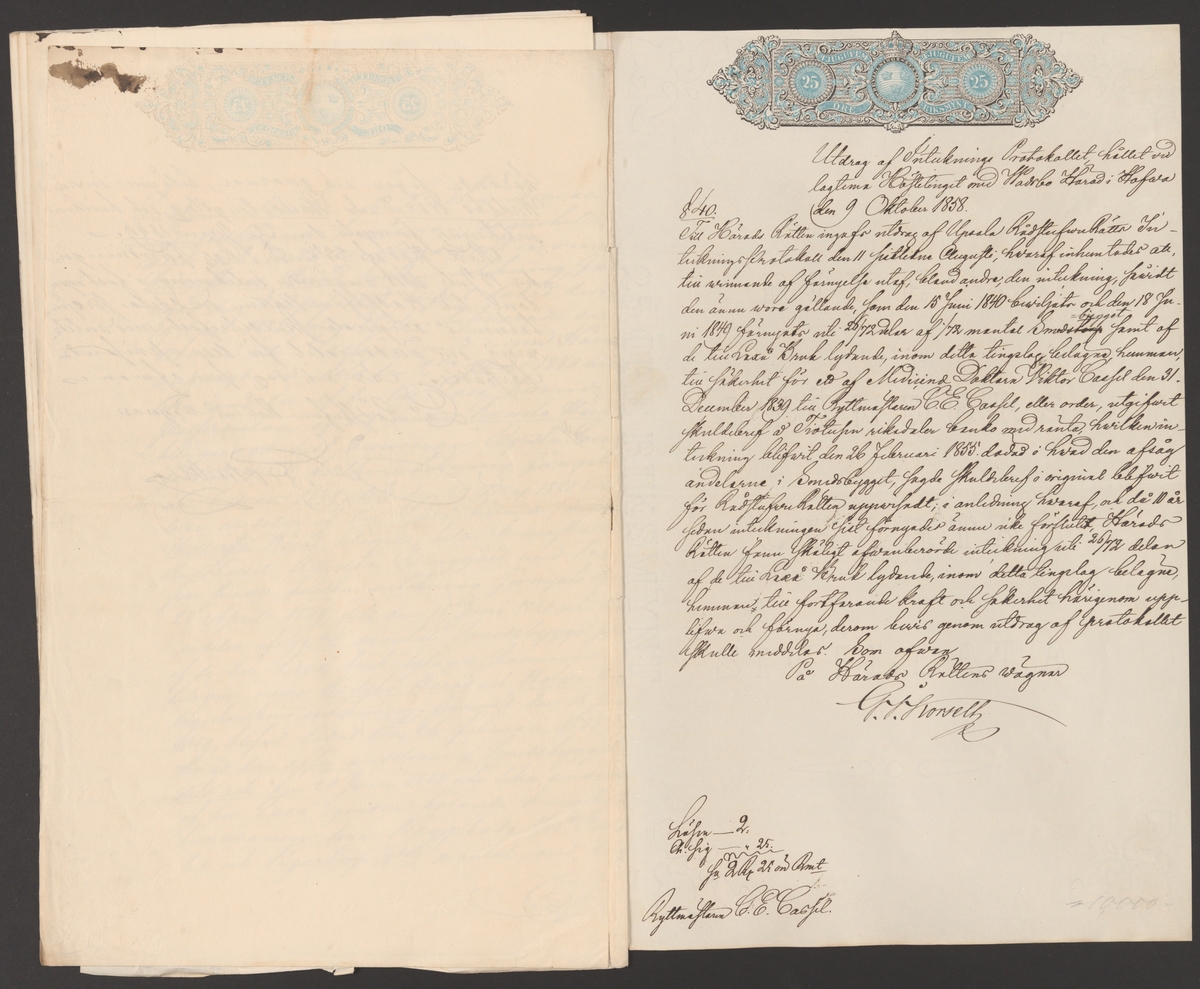 TJUGUFEM TJUGUFEM
25 25
ÖRE RIKSMYNT
Utdrag af Intecknings Protokollet, hållet vid
lagtima Höstetinget med Wadsbo Härad i Hofva
den 9 Oktober 1858.
§ 40.
Till Härads Rätten ingafs utdrag af Upsala Rådstufvu Rätts In-
teckningsProtokoll den 11 sistledne Augusti, hvaraf inhemtades att,
till vinnande af förnyelse utaf, bland andra, den inteckning, såvidt
den ännu vore gällande, som den 15 Juni 1840 beviljats och den 18 Ju-
ni 1849 förnyats uti 26/72 delar af 1/72 mantal Smedsbygget samt af
de till Laxå Bruk lydande, inom detta tingslag belägna hemman,
till säkerhet för ett af Medicine Doktorn Viktor Cassel den 31
December 1839 till Ryttmästaren C. E. Cassel, eller order, utgifvit
skuldebref å Tiotusen riksdaler banko med ränta, hvilken in-
teckning blifvit den 26 Februari 1855 dödad i hvad den afsåg
andelarne i Smedsbygget, sagde skuldebref i original blifvit
för Rådstufvu Rätten uppvisadt; i anledning hvaraf, och då 10 år
sedan inteckningen sist förnyades ännu icke förflutit, Härads
Rätten fann skäligt ofvanberörde inteckning uti 26/72 delar
af de till Laxå Bruk lydande, inom detta tingslag belägna,
hemman, till fortfarande kraft och säkerhet härigenom upp-
lifva och förnya, derom bevis genom utdrag af protokollet
skulle meddelas. Som ofvan
På Härads Rättens vägnar
Lösen — 2.
Ch. sig — " 25.
Sa 2 Rd 25 öre Rmt
Ryttmästaren C. E. Cassel.